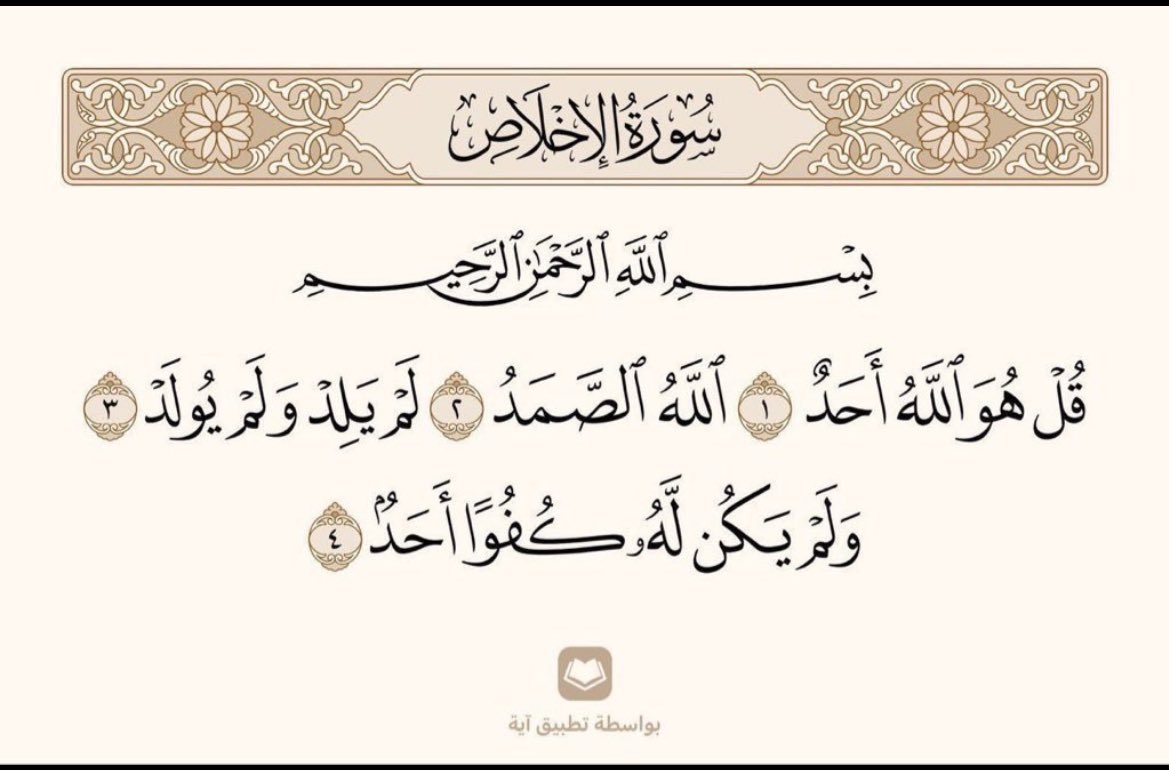 سُورَةُ الإِخْلَاصِ
بِسْمِ ٱللَّهِ ٱلرَّحْمَٰنِ ٱلرَّحِيمِ
قُلْ هُوَ ٱللَّهُ أَحَدٌ ١ ٱللَّهُ ٱلصَّمَدُ ٢ لَمْ يَلِدْ وَلَمْ يُولَدْ ٣
وَلَمْ يَكُن لَّهُۥ كُفُوًا أَحَدٌۢ ٤
بواسطة تطبيق آية